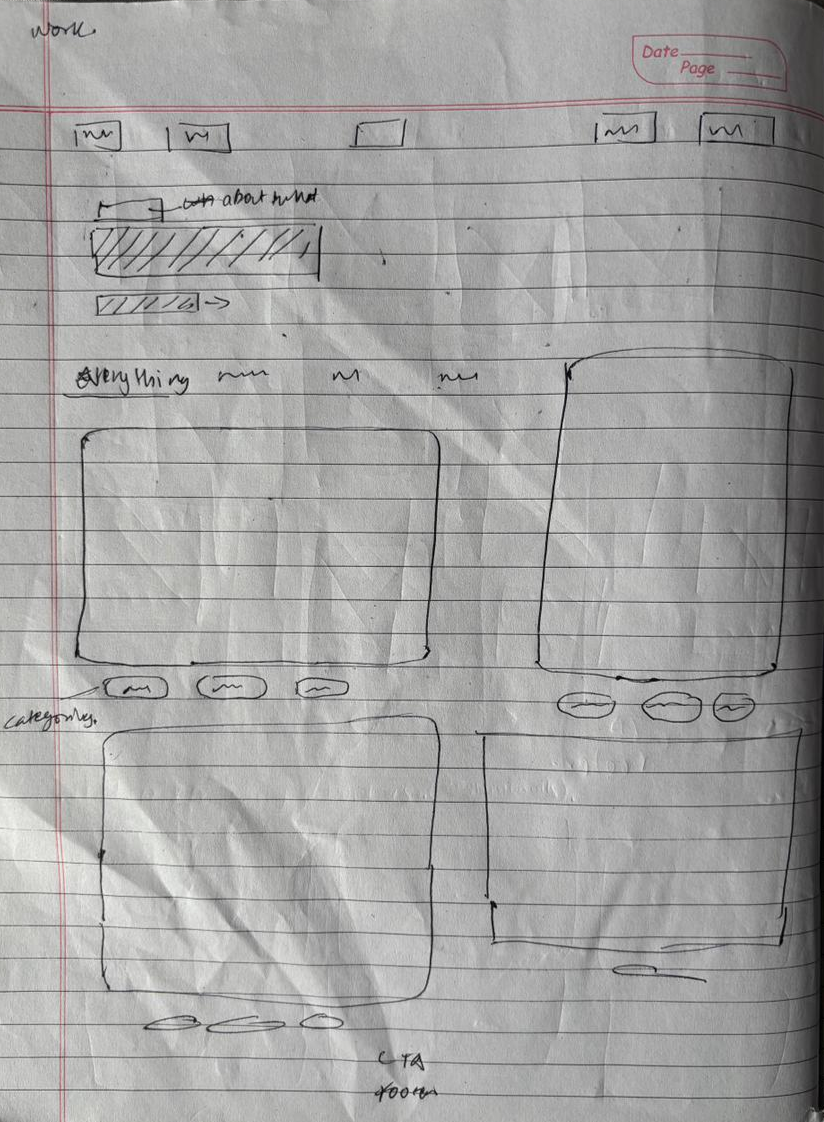 Work
Date
Page
about what
Everything
categories.
CTA
footer